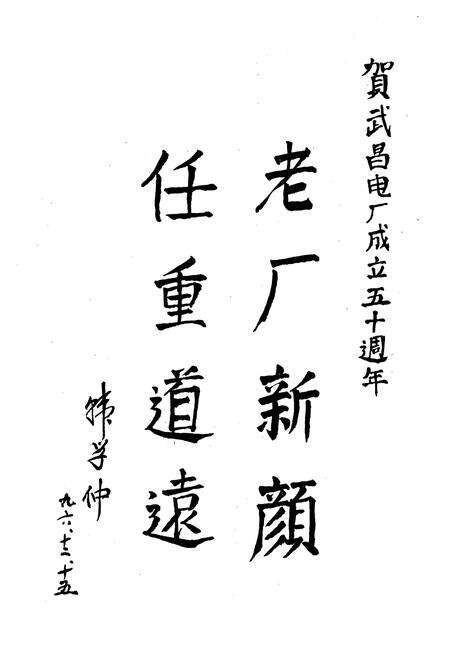 賀武昌电厂成立五十週年
老厂新顔
任重道遠
韩学仲
九六、十二、十五